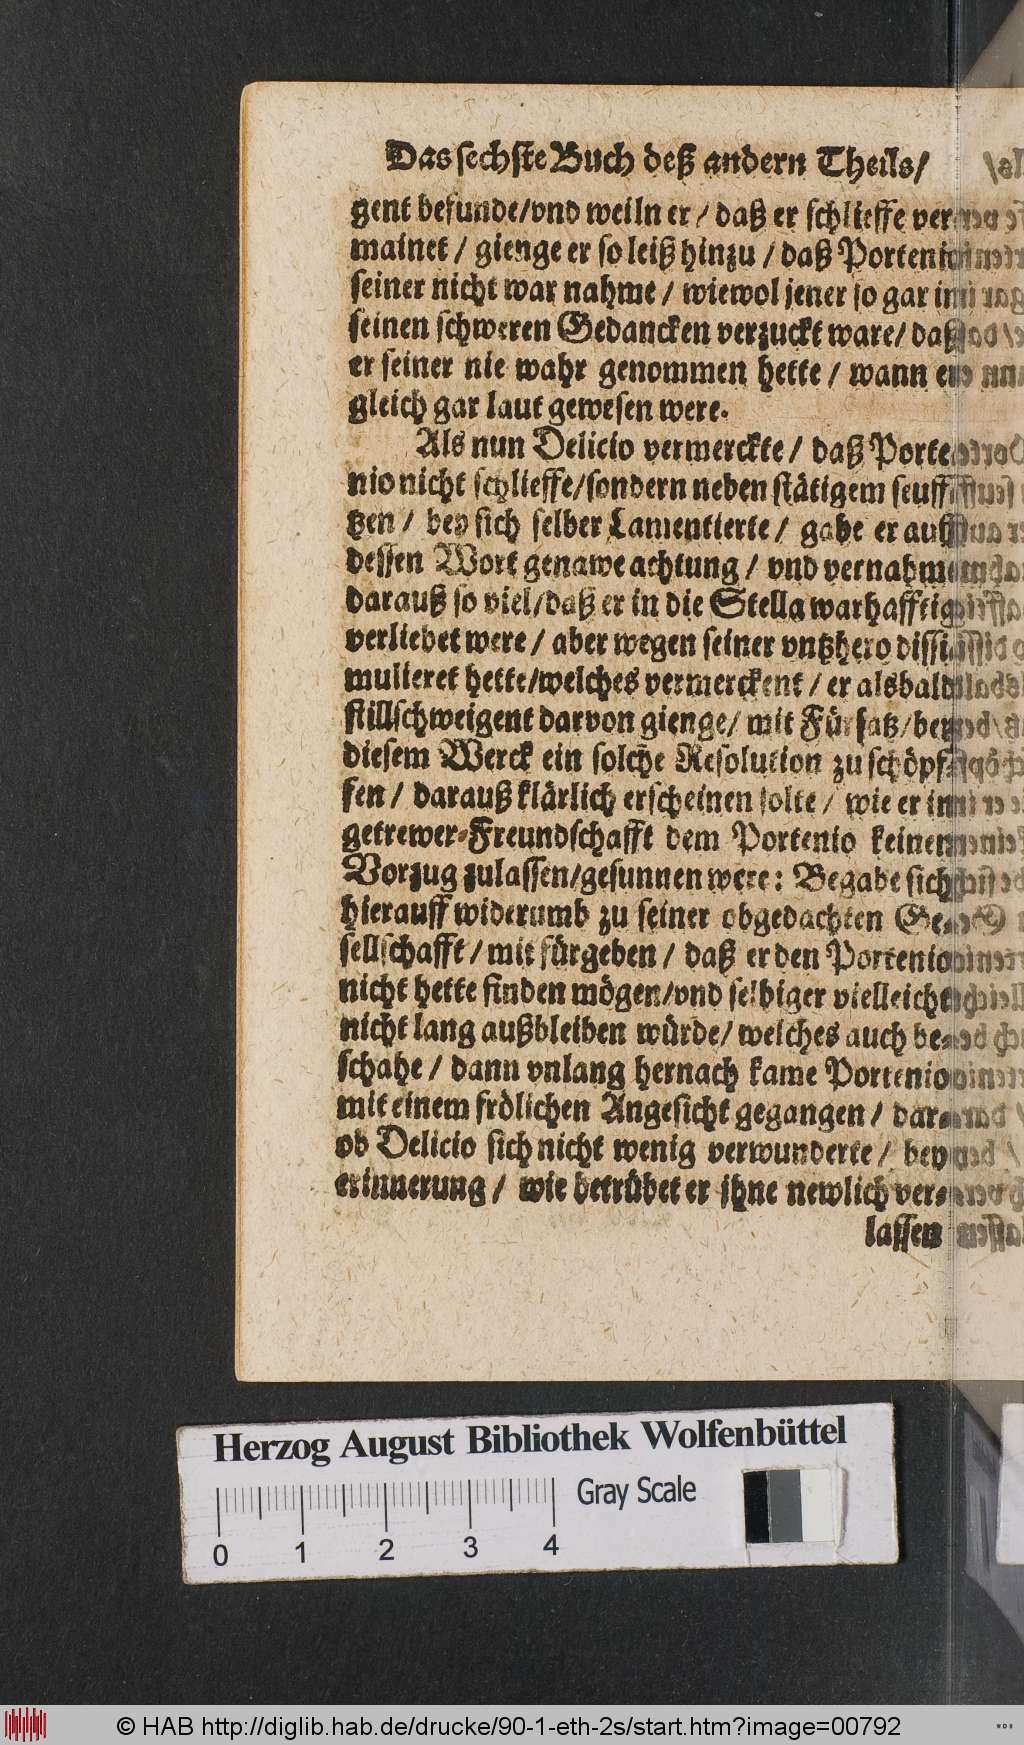 Das sechste Buch deß andern Theils/
gent befunde/vnd weiln er / daß er schlieffe ver-
mainet / gienge er so leiß hinzu / daß Portenio
seiner nicht war nahme / wiewol jener so gar in
seinen schweren Gedancken verzuckt ware/ daß
er seiner nie wahr genommen hette / wann er
gleich gar laut gewesen were.
Als nun Delicio vermerckte / daß Porte-
nio nicht schlieffe/sondern neben stätigem seuff-
tzen / bey sich selber Lamentierte / gabe er auff
dessen Wort genawe achtung / vnd vernahm
darauß so viel/daß er in die Stella warhafftig
verliebet were / aber wegen seiner vntzhero dissi-
mulieret hette/welches vermerckent / er alsbald
stillschweigent darvon gienge/ mit Fürsatz/bey
diesem Werck ein solche Resolution zu schöpf-
fen / darauß klärlich erscheinen solte / wie er in
getrewer-Freundschafft dem Portenio keinen
Vorzug zulassen/gesunnen were: Begabe sich
hierauff widerumb zu seiner obgedachten Ge-
sellschafft / mit fürgeben / daß er den Portenio
nicht hette finden mögen/vnd selbiger vielleicht
nicht lang außbleiben würde/ welches auch be-
schahe / dann vnlang hernach kame Portenio
mit einem frölichen Angesicht gegangen / dar-
ob Delicio sich nicht wenig verwunderte / bey
erinnerung / wie betrübet er jhne newlich ver-
lassen
Herzog August Bibliothek Wolfenbüttel
Gray Scale
0 1 2 3 4
© HAB http://diglib.hab.de/drucke/90-1-eth-2s/start.htm?image=00792